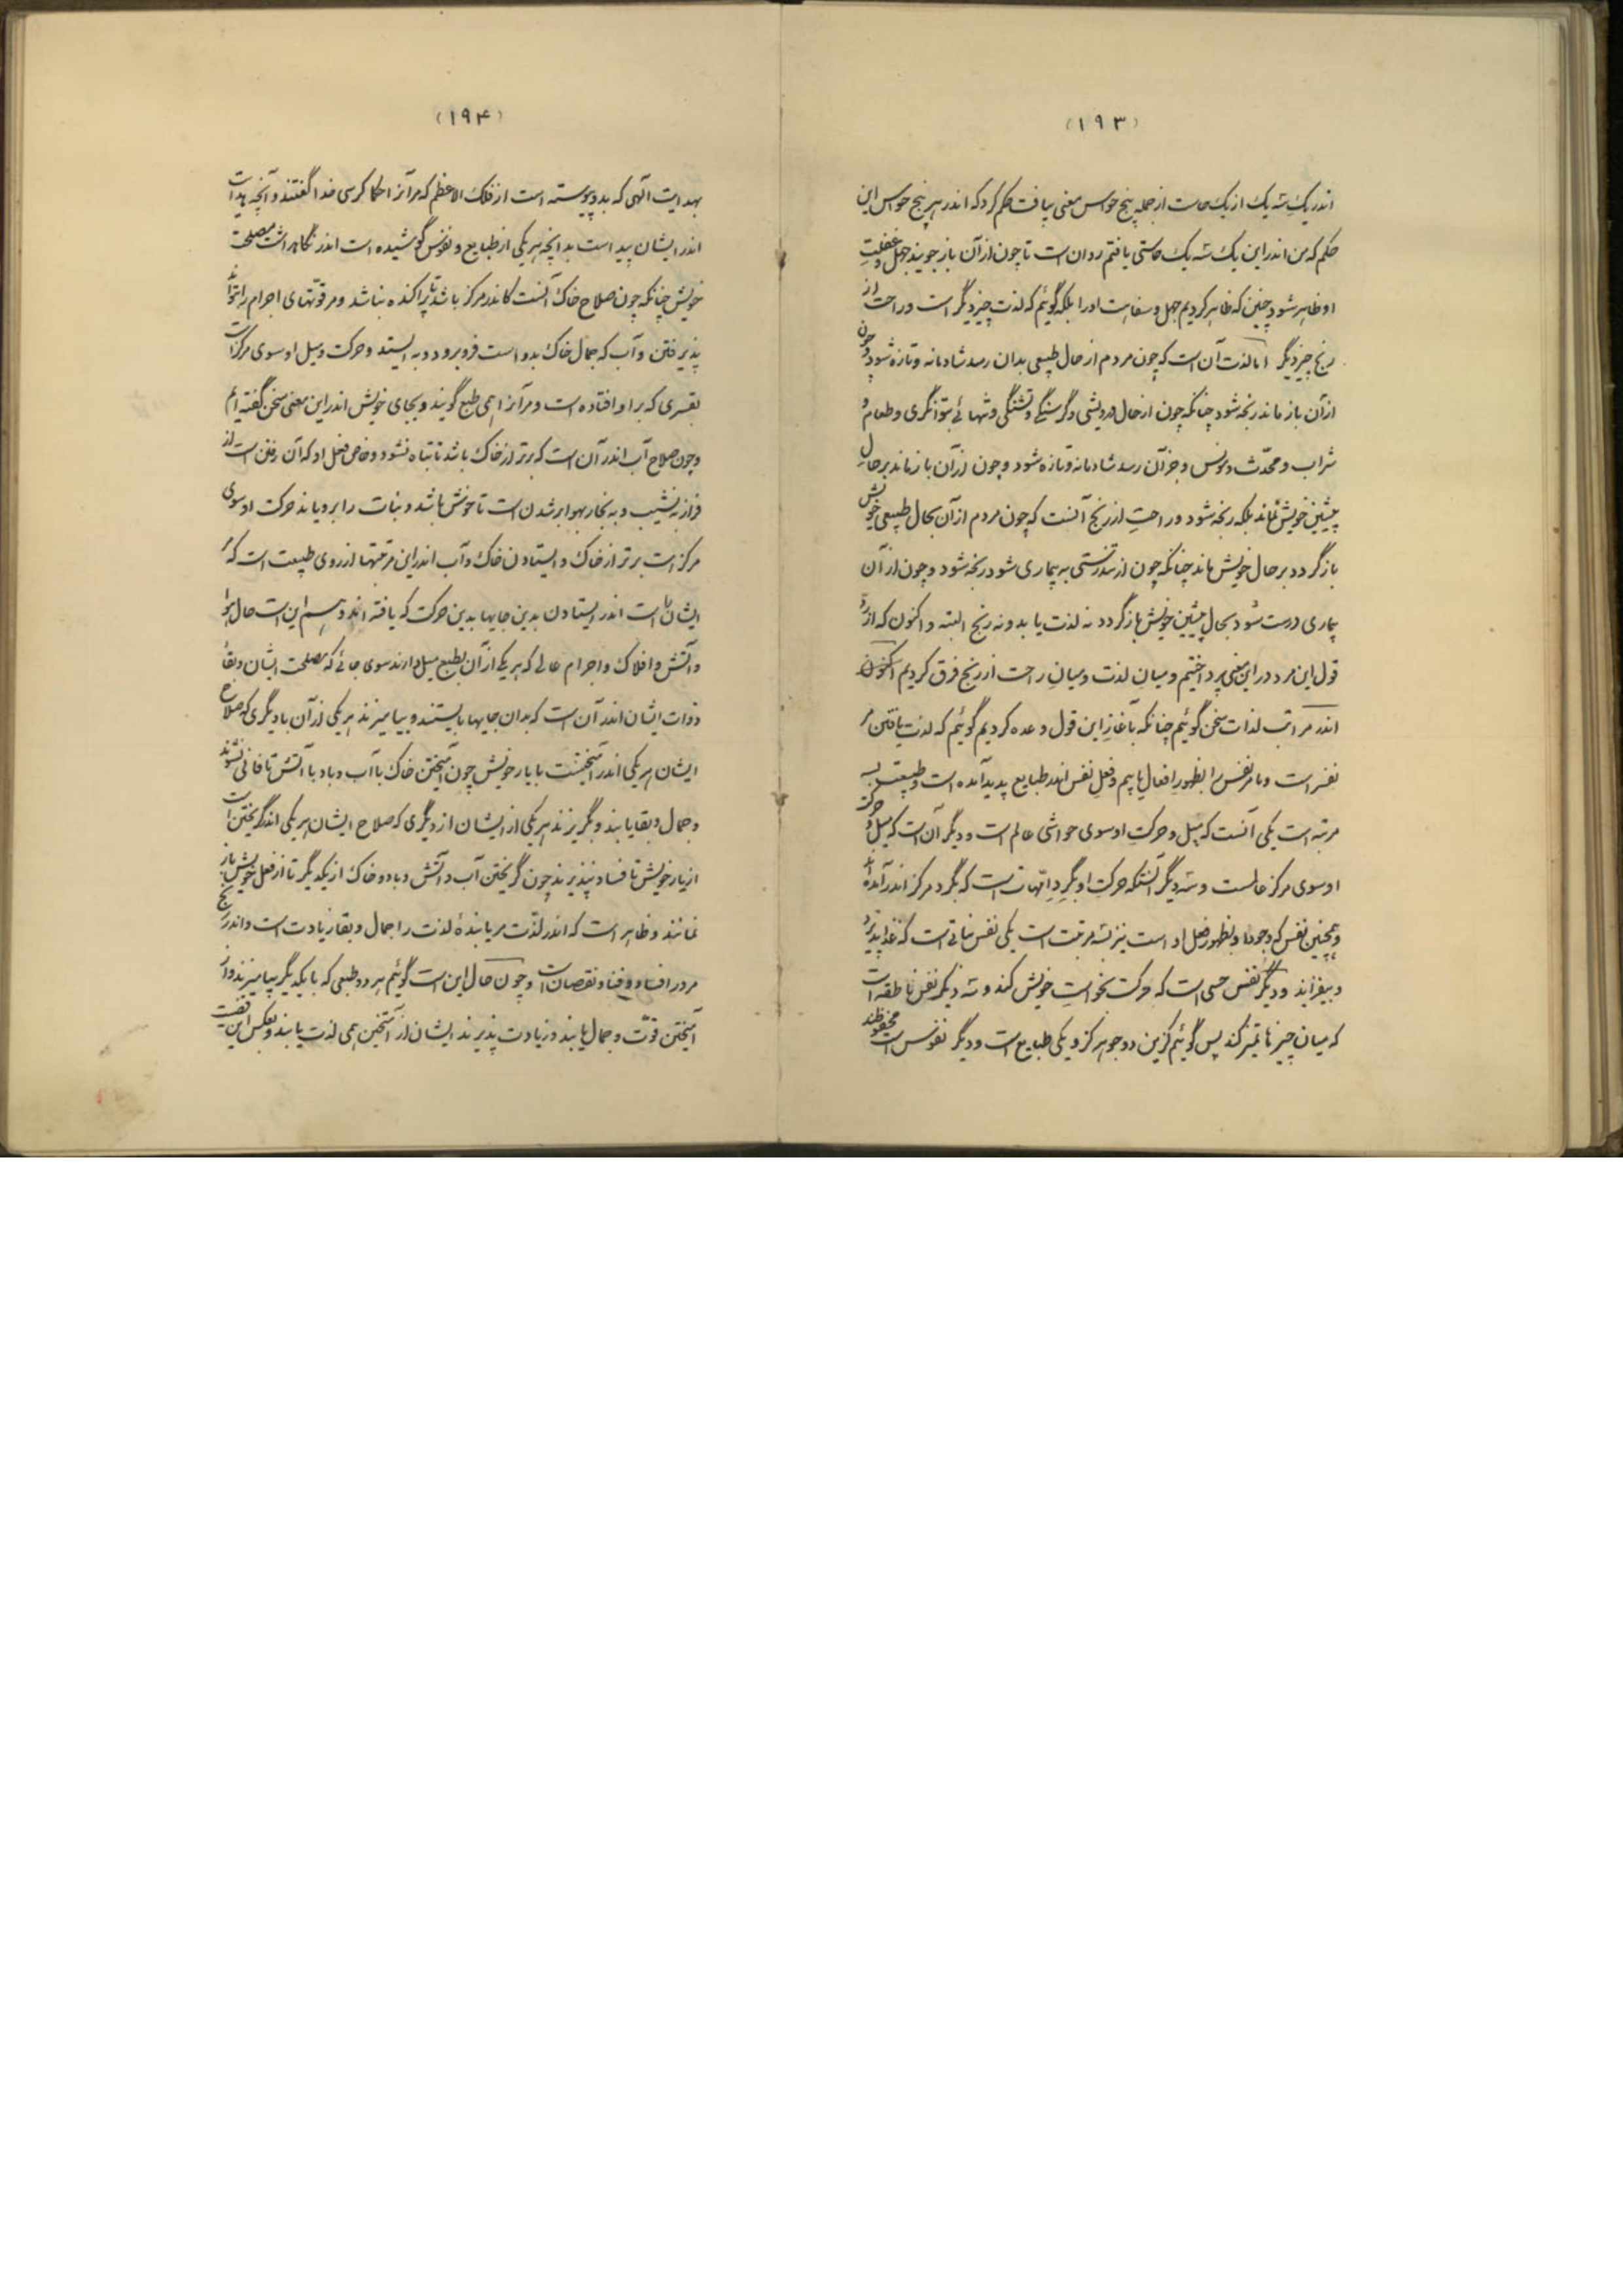 (۱۹۳)
اندر یک سه یک از یک حاست از جمله پنج حواس معنی بیافت حکم کرد که اندر هر پنج حواس این
حکم که من اندر این یک سه یک حاستی یافتم روان است تا چون از آن باز جویند جهل و غفلت
او ظاهر شود چنین که ظاهر کردیم جهل و سفاهت او را بلکه گوئیم که لذت چیز دیگر است و راحت از
رنج چیز دیگر اما لذت آن است که چون مردم از حال طبیعی بدان رسد شادمانه و تازه شود و چون
از آن باز ماند رنجه شود چنانکه چون از حال درویشی و گرسنگی و تشنگی و تنهائی بتوانگری و طعام و
شراب و محدّث و مونس و جز آن رسد شادمانه و تازه شود و چون از آن باز ماند بر حال
پیشین خویش نماند بلکه رنجه شود و راحت از رنج آنست که چون مردم از آن بحال طبیعی خویش
باز گردد بر حال خویش بماند چنانکه چون از تندرستی به بیماری شود رنجه شود و چون از آن
بیماری درست شود بحال پیشین خویش باز گردد نه لذت یابد و نه رنج البته و اکنون که از ردّ
قول این مرد در این معنی پرداختیم و میان لذت و میان راحت از رنج فرق کردیم اکنون
اندر مراتب لذات سخن گوئیم چنانکه بآغاز این قول وعده کردیم گوئیم که لذت یافتن مر
نفس راست و ما مر نفس را بظهور افعال یابیم و فعل نفس اندر طبایع پدید آمده است و طبیعت بسه
مرتبه است یکی آنست که میل و حرکت او سوی حواشی عالم است و دیگر آن است که میل و حرکت
او سوی مرکز عالمست و سه دیگر آنستکه حرکت او بگرد امهات است که بگرد مرکز اندر آمده اند
و همچنین نفس که وجود او بظهور فعل اوست نیز بسه مرتبت است یکی نفس نباتی است که غذا پذیرد
و بیفزاید و دیگر نفس حسی است که حرکت بخواست خویش کند و سه دیگر نفس ناطقه است
که میان چیزها تمیز کند پس گوئیم کزین دو جوهر کزو یکی طبایع است و دیگر نفوس است محفوظند
(۱۹۴)
بهدایت الهی که بدو پیوسته است از فلک الاعظم که مر آنرا حکما کرسی خدا گفتند و آنچه هدایت
اندر ایشان پیداست بدانچه هر یکی از طبایع و نفوس کوشیده است اندر نگاهداشت مصلحت
خویش چنانکه چون صلاح خاک آنست کاندر مرکز باشد تا پراکنده نباشد و مر قوّتهای اجرام را بتواند
پذیرفتن و آب که جمال خاک بدو است فرو برود و به ایستد و حرکت و میل او سوی مرکز است
بقسری که بر او افتاده است و مر آنرا همی طبع گویند و بجای خویش اندر این معنی سخن گفته ایم
و چون صلاح آب اندر آن است که برتر از خاک باشد تا تباه نشود و خاص فعل او که آن رفتن است از
فراز به نشیب و به بخار بهوا بر شدن است تا خوش باشد و نبات را برویاند حرکت او سوی
مرکز است برتر از خاک و ایستادن خاک و آب اندر این مرتبتها از روی طبیعت است که مر
ایشان راست اندر ایستادن بدین جایها بدین حرکت که یافته اند و هم این است حال هوا
و آتش و افلاک و اجرام عالی که هر یکی از آن بطبع میل دارند سوی جائی که مصلحت ایشان و بقاء
ذوات ایشان اندر آن است که بدان جایها بایستند و بیامیزند هر یکی از آن با دیگری که صلاح
ایشان هر یکی اندر آمیختنست با یار خویش چون آمیختن خاک با آب و باد با آتش تا فانی نشوند
و جمال و بقا یابند و بگریزند هر یکی از ایشان از دیگری که صلاح ایشان هر یکی اندر گریختن است
از یار خویش تا فساد نپذیرند چون گریختن آب و آتش و باد و خاک از یکدیگر تا از فعل خویش باز
نمانند و ظاهر است که اندر لذّت مر یابنده لذت را جمال و بقا زیادت است و اندر رنج
مر در افساد و فنا و نقصان است و چون حال این است گوئیم هر دو طبعی که با یکدیگر بیامیزند و از
آمیختن قوّت و جمال یابند و زیادت پذیرند ایشان از آمیختن همی لذت یابند و بعکس این قضیت